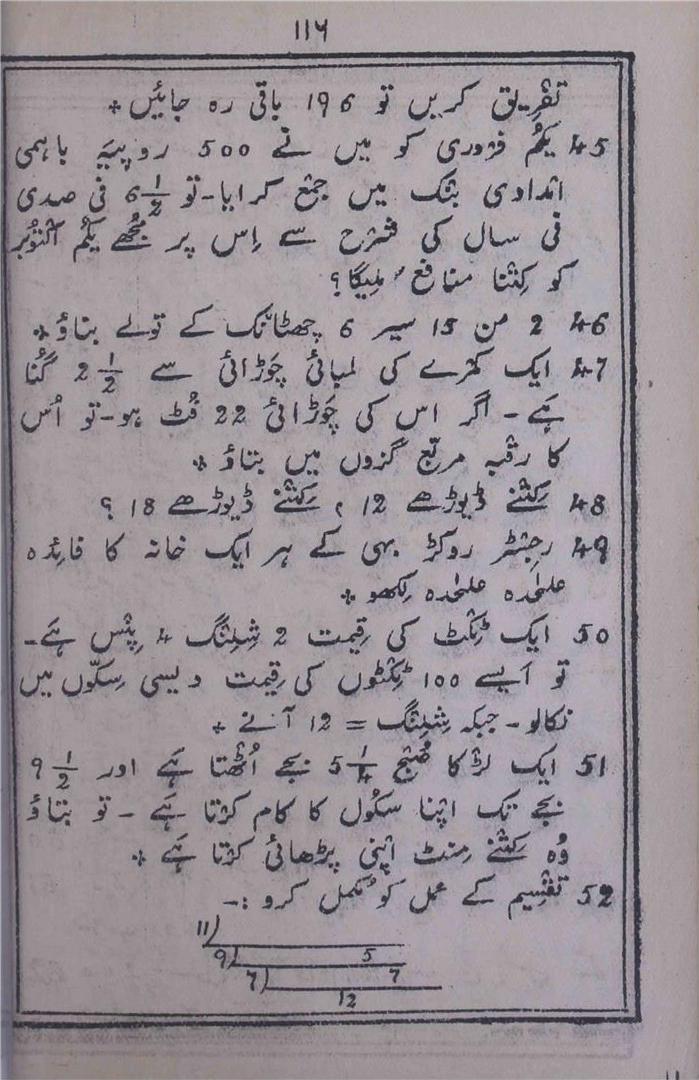 ۱۱۶
تفریق کریں تو 196 باقی رہ جائیں +
45 یکم فروری کو میں نے 500 روپیہ باہمی
امدادی بنک میں جمع کرایا - تو 6 1/2 فی صدی
فی سال کی شرح سے اِس پر مجھے یکم اکتوبر
کو کِتنا منافع مِلیگا؟
46 2 من 15 سیر 6 چھٹانک کے تولے بتاؤ +
47 ایک کمرے کی لمبائی چَوڑائی سے 2 1/2 گُنا
ہَے - اگر اس کی چَوڑائی 22 فُٹ ہو - تو اُس
کا رقبہ مربّع گزوں میں بتاؤ +
48 کِتنے ڈیوڑھے 12، کِتنے ڈیوڑھے 18 ؟
49 رجِسٹر روکڑ بہی کے ہر ایک خانہ کا فائدہ
علٰحدہ علٰحدہ لِکھو +
50 ایک ٹِکٹ کی قِیمت 2 شِلِنگ 4 پِنس ہَے -
تو اَیسے 100 ٹِکٹوں کی قِیمت دیسی سِکّوں میں
نکالو - جبکہ شِلِنگ = 12 آنے +
51 ایک لڑکا صُبح 5 1/4 بجے اُٹھتا ہَے اور 9 1/2
بجے تک اپنا سکُول کا کام کرتا ہَے - تو بتاؤ
وُہ کِتنے مِنٹ اپنی پڑھائی کرتا ہَے +
52 تقسِیم کے عمل کو مکمل کرو :-
11)
9) 5
7) 7
12